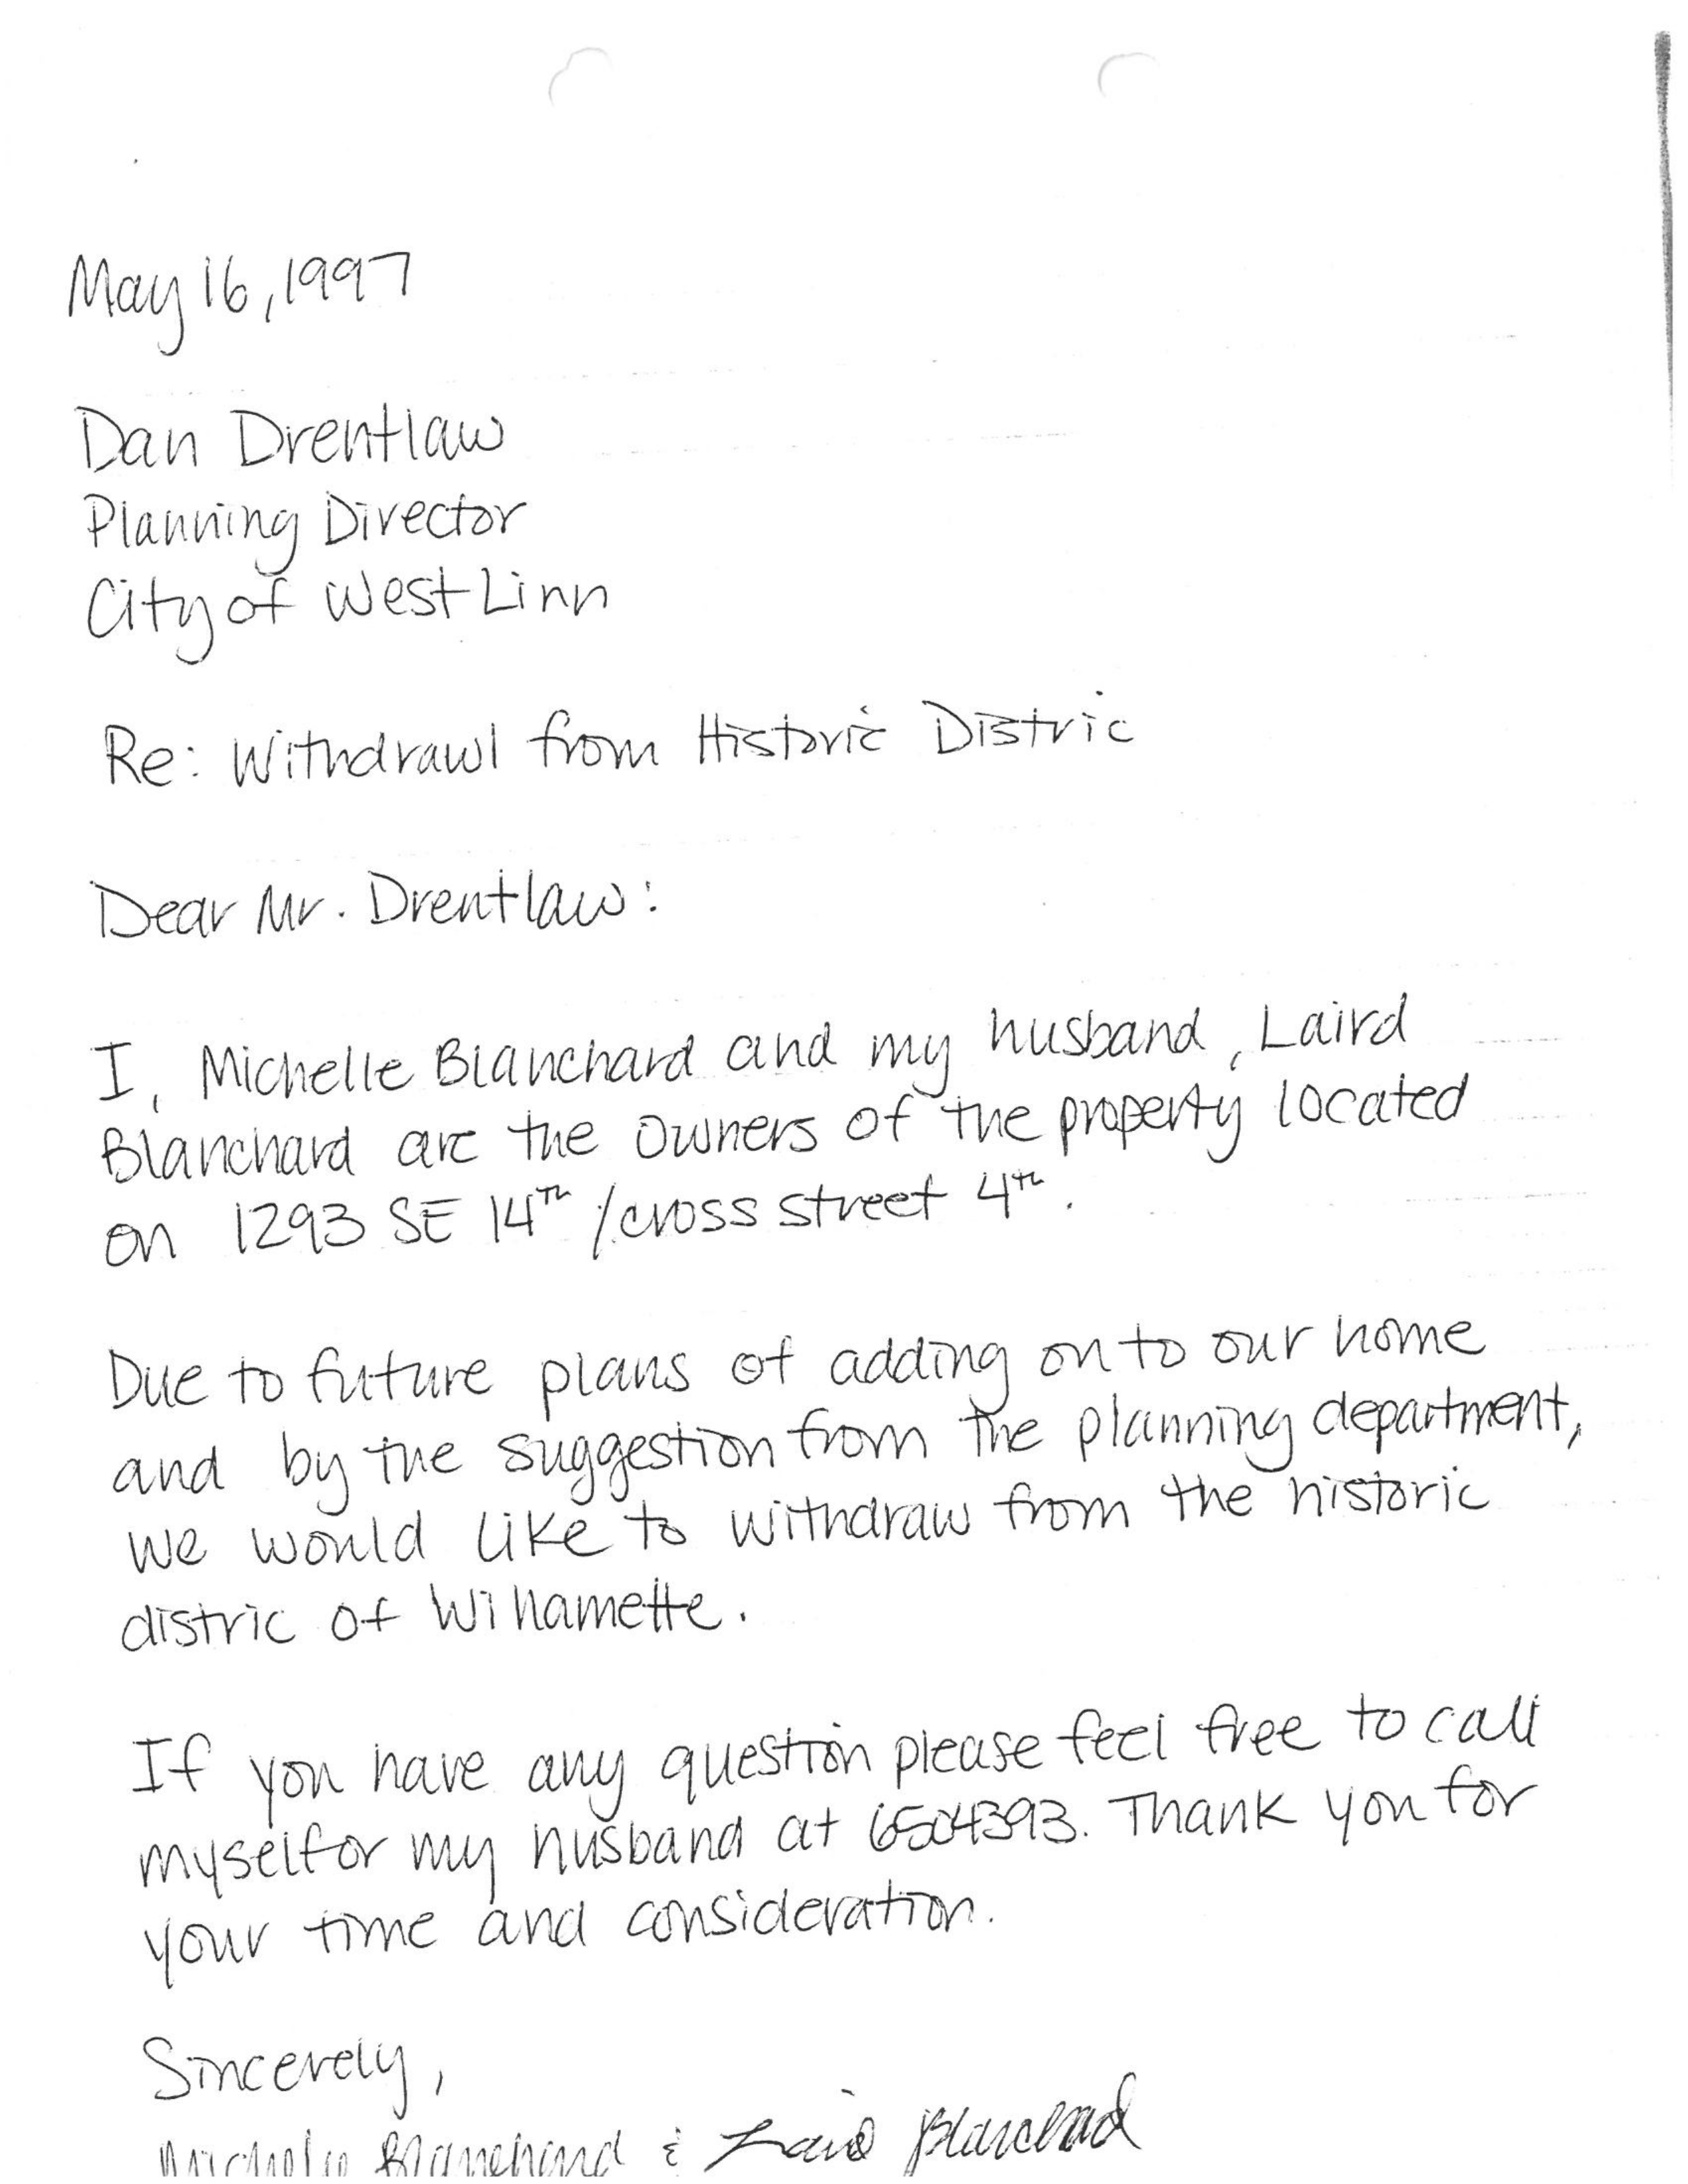 May 16, 1997
Dan Drentlaw
Planning Director
City of West Linn
Re: Withdrawl from Historic Distric
Dear Mr. Drentlaw:
I, Michelle Blanchard and my husband, Laird
Blanchard are the owners of the property located
on 1293 SE 14th /cross street 4th.
Due to future plans of adding on to our home
and by the suggestion from the planning department,
we would like to withdraw from the historic
distric of Willamette.
If you have any question please feel free to call
myself or my husband at 6504393. Thank you for
your time and consideration.
Sincerely,
Michelle Blanchard & Laird Blanchard